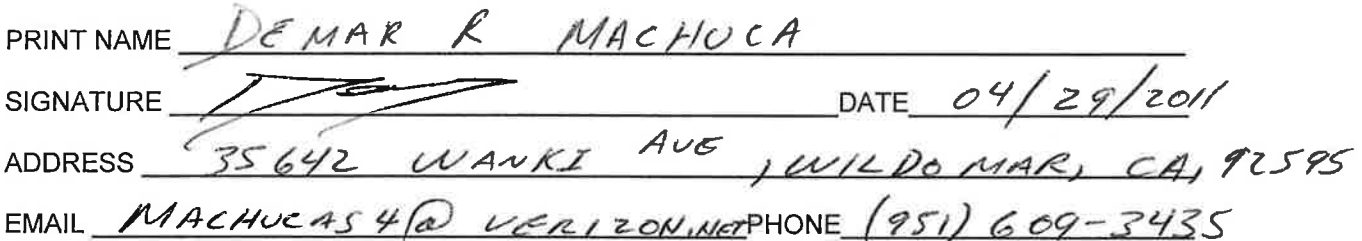 PRINT NAME DEMAR R MACHUCA
SIGNATURE DATE 04/29/2011
ADDRESS 35642 WANKI AVE, WILDOMAR, CA, 92595
EMAIL MACHUCAS4@VERIZON.NET PHONE (951) 609-3435